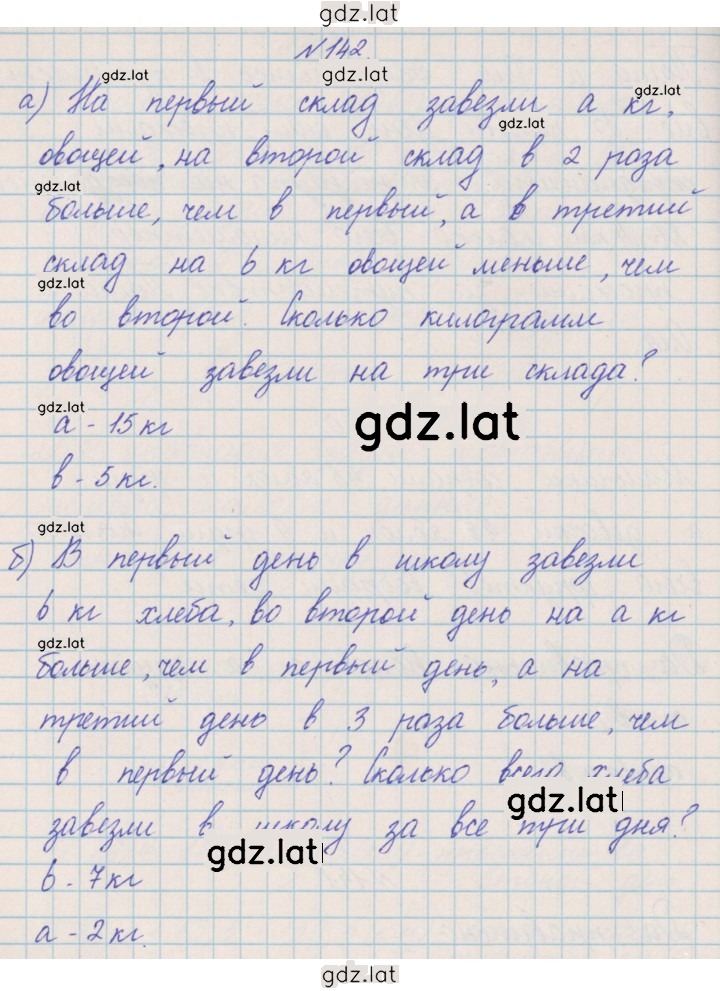 gdz.lat
№142.
gdz.lat gdz.lat gdz.lat
а) На первый склад завезли а кг,
gdz.lat
овощей, на второй склад в 2 раза
gdz.lat
больше, чем в первый, а в третий
склад на b кг овощей меньше, чем
gdz.lat
во второй. Сколько килограмм
овощей завезли на три склада?
gdz.lat
а - 15 кг
gdz.lat
в - 5 кг.
gdz.lat
б) В первый день в школу завезли
b кг хлеба, во второй день на а кг
gdz.lat
больше, чем в первый день, а на
третий день в 3 раза больше, чем
в первый день? Сколько всего хлеба
gdz.lat
завезли в школу за все три дня?
gdz.lat
b - 7 кг
а - 2 кг.
gdz.lat